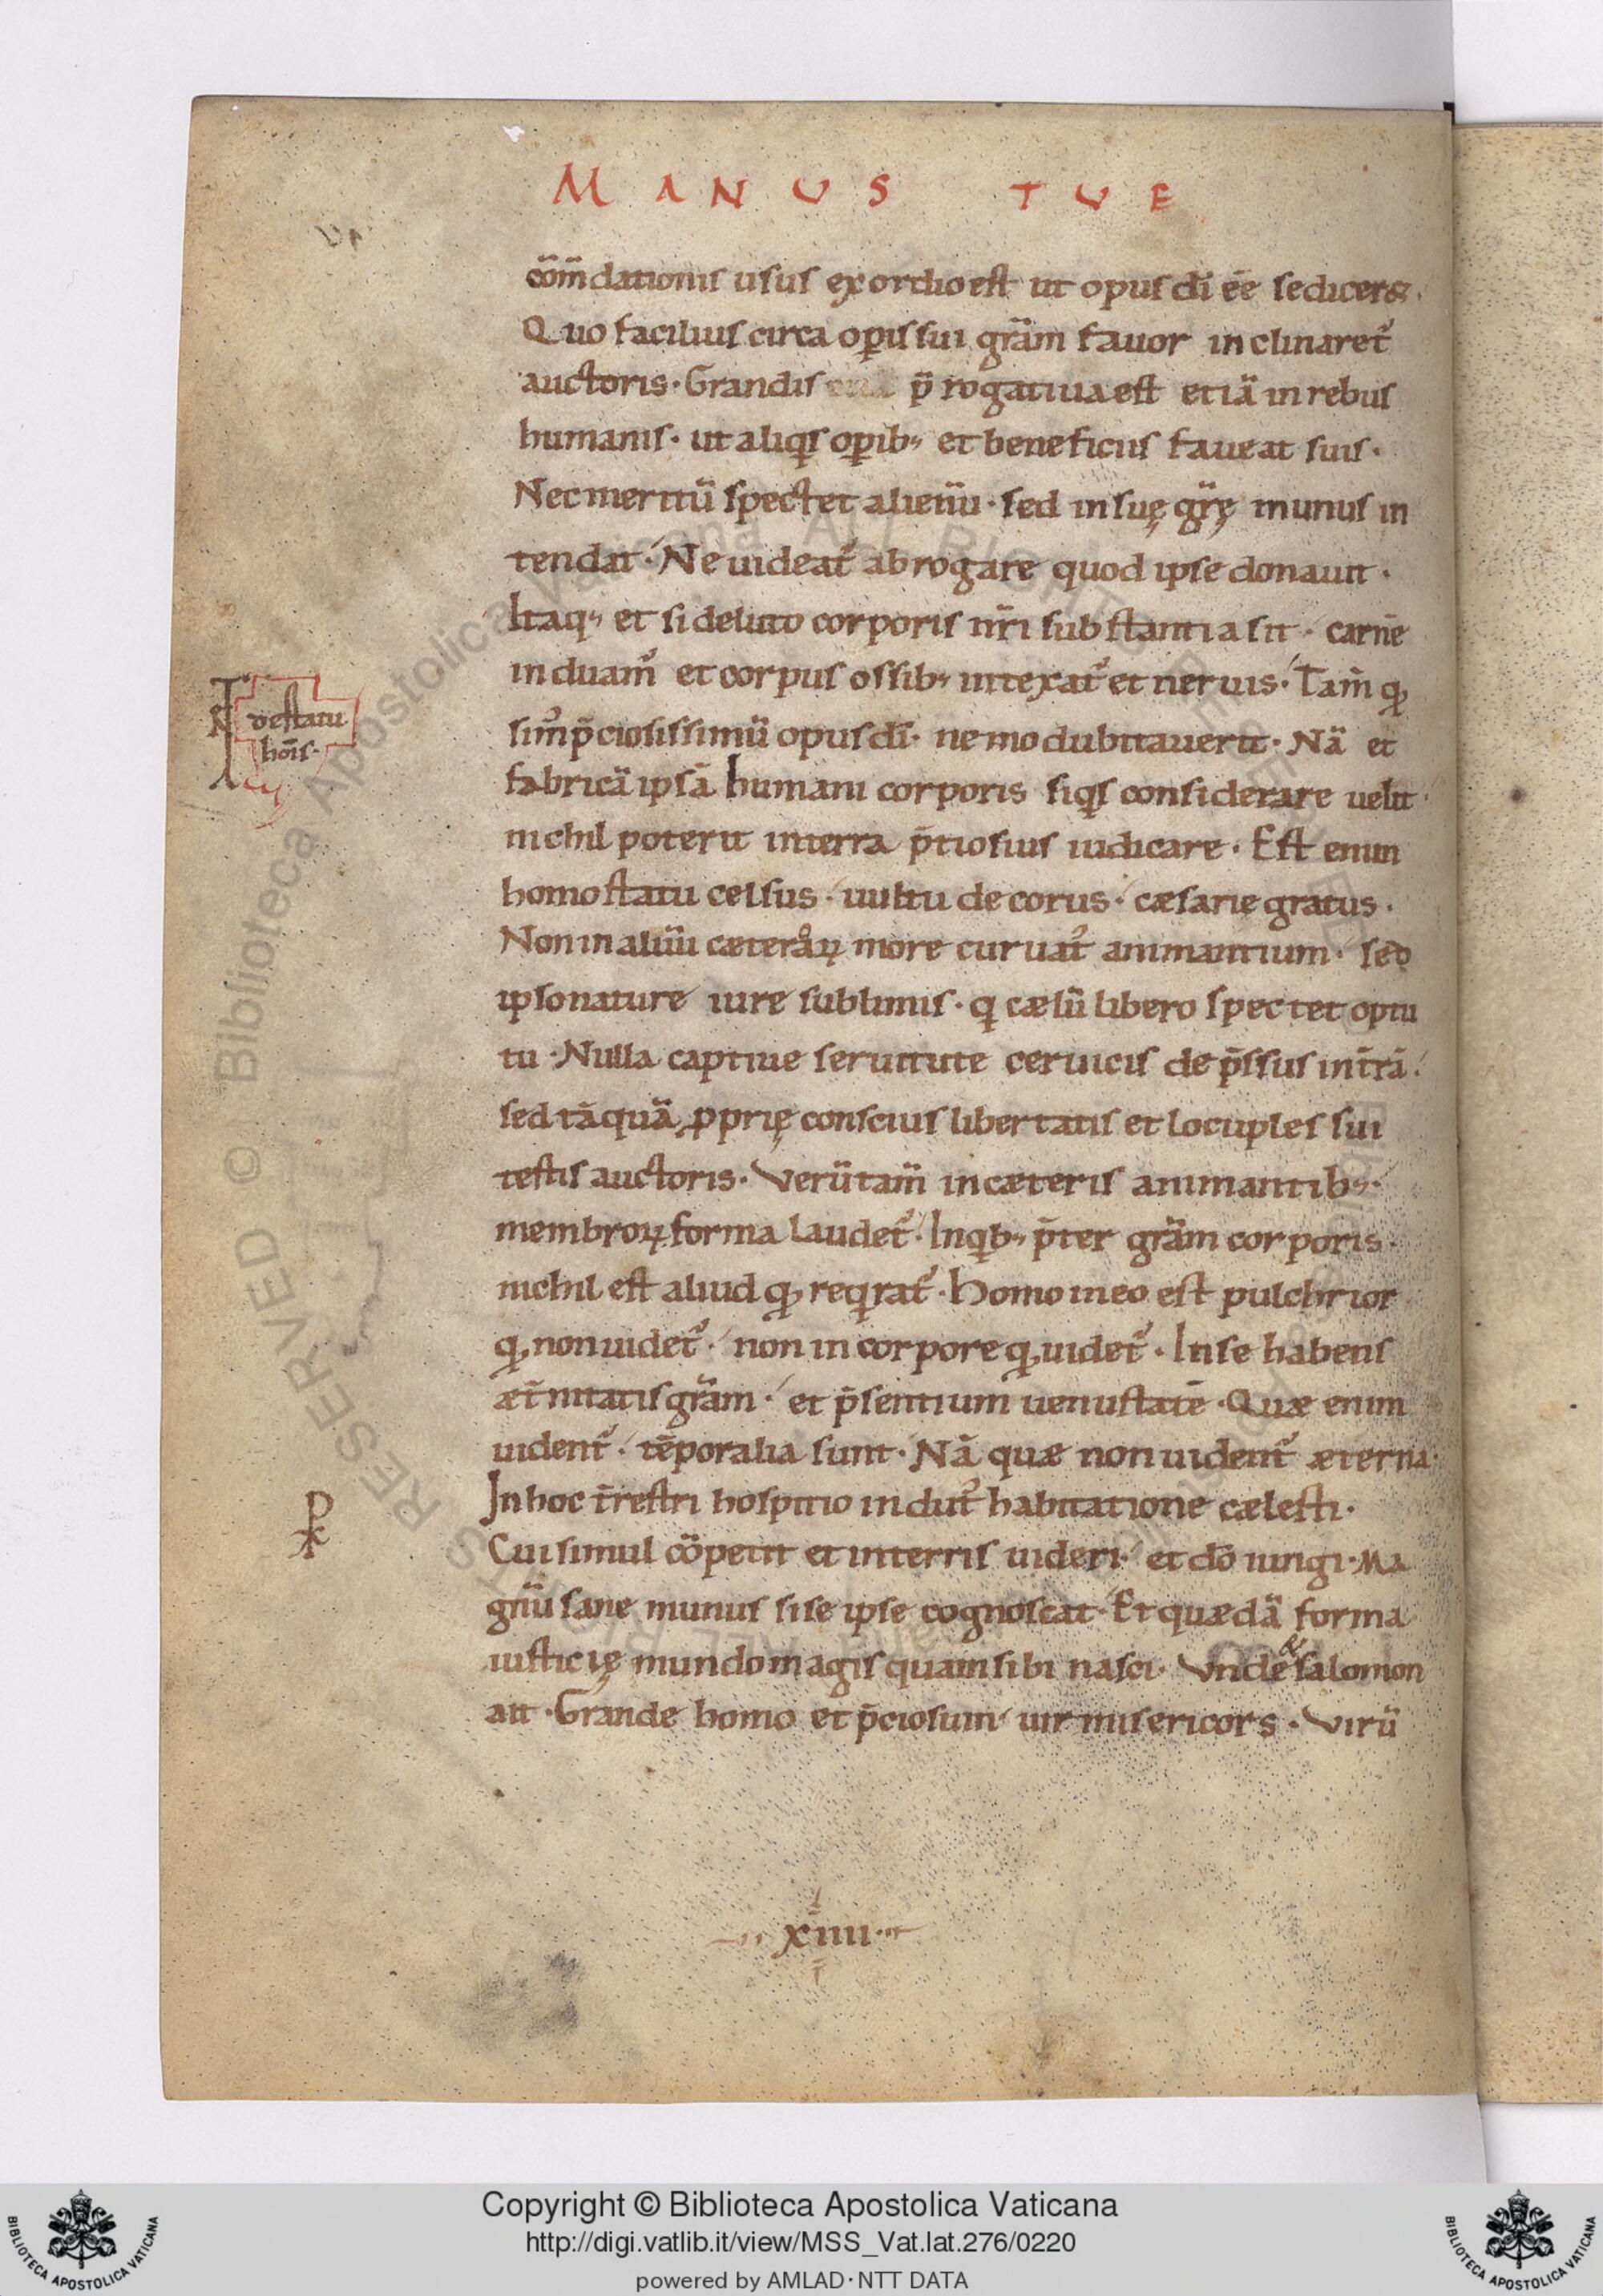 MANUS TUE
com̄dationis usus exordio est ut opus dī ēē se diceret.
Quo facilius circa opis sui grām fauor inclinaret᷒
auctoris. Grandis p̄rogatiua est etiā in rebus
humanis. ut aliqͥs opib; et beneficiis faueat suis.
Nec meritū spectet alienū. sed in suę grę̄ munus in
tendat. Ne uideat᷒ abrogare quod ipse donauit.
Itaq; et si de luto corporis nr̄i substantia sit. carnē
induam᷒ et corpus ossib; intexat᷒ et neruis. Tam̄ qđ
sim᷒ p̄ciosissimū opus dī. nemo dubitauerit. Nā et
fabricā ipsā humani corporis siqͥs considerare uelit
nichil poterit in terra p̄tiosius iudicare. Est enim
homo statu celsus. uultu decorus. cæsarie gratus.
Non in aluū cæteraꝝ more curuat᷒ animantium. sed
ipso nature iure sublimis. qͥ cælū libero spectet optu
tu. Nulla captiue seruitute ceruicis dep̄ssus in tr̄a.
sed tāquā ꝓprię conscius libertatis et locuples sui
testis auctoris. Verūtam̄ in cæteris animantib;.
membroꝝ forma laudet᷒. Inqͥb; p̄ter grām corporis.
nichil est aliud qđ reqͥrat᷒. Homo in eo est pulchrior
qđ non uidet᷒. non in corpore qđ uidet᷒. In se habens
æt̄nitatis grām. et p̄sentium uenustatē. Quæ enim
uident᷒. tēporalia sunt. Nā quæ non uident᷒ æterna.
In hoc tr̄restri hospitio indut᷒ habitatione cælesti.
Cui simul cōpetit et in terris uideri. et dō iungi. Ma
gnū sane munus si se ipse cognoscat. Et quædā forma
iusticię mundo magis quam sibi nasci. Vnde & salomon
ait. Grande homo et p̄ciosum uir misericors. Virū
N̄ de statu
hōis.
xiiii
Copyright © Biblioteca Apostolica Vaticana
http://digi.vatlib.it/view/MSS_Vat.lat.276/0220
powered by AMLAD·NTT DATA
BIBLIOTECA APOSTOLICA VATICANA
BIBLIOTECA APOSTOLICA VATICANA